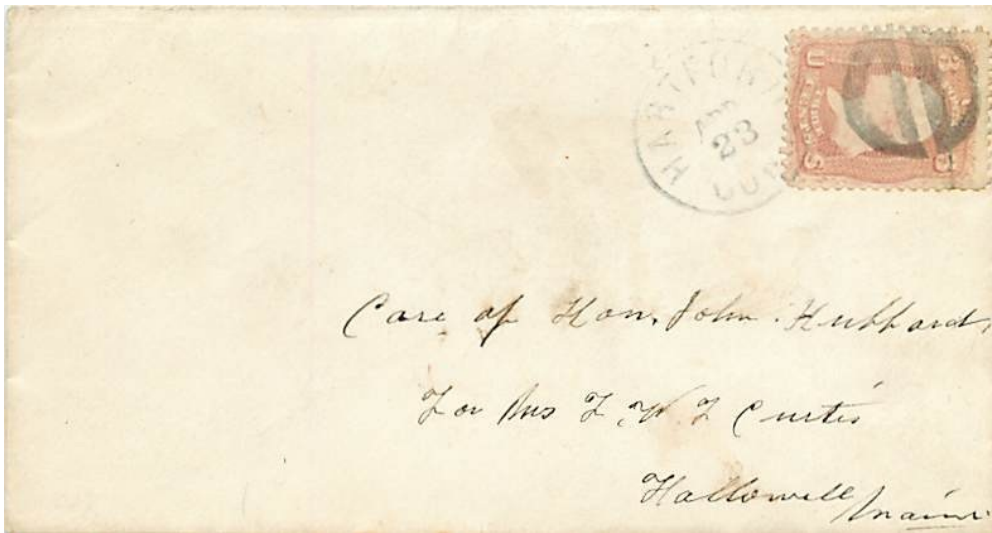 HARTFORD
APR
23
CON
U S
3 3
THREE CENTS
Care of Hon. John Hubbard,
For Mrs F. W. F Curtis
Hallowell
Maine